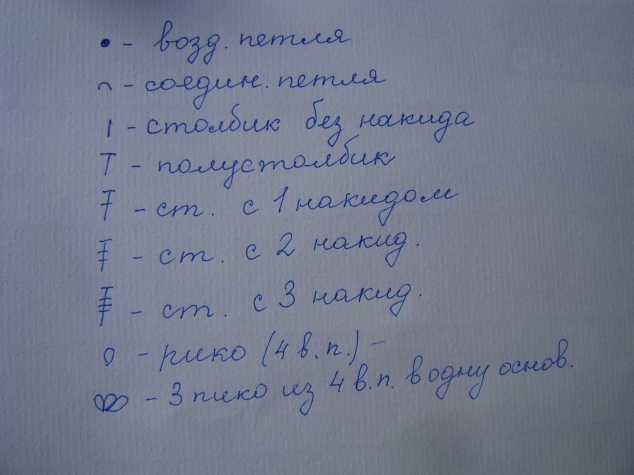 • - возд. петля
⌒ - соедин. петля
| - столбик без накида
T - полустолбик
Ŧ - ст. с 1 накидом
‡ - ст. с 2 накид.
- ст. с 3 накид.
о - пико (4 в.п.) -
- 3 пико из 4 в.п. в одну основ.